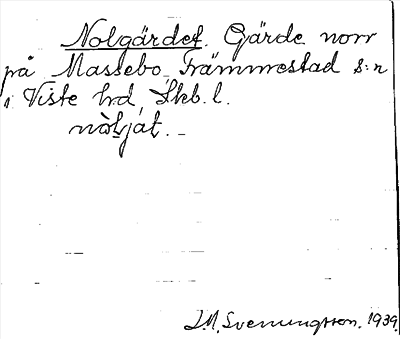 Nolgärdet. Gärde norr
på Massebo, Främmestad s:n
i Viste hd, Skb. l.
nòḷját.
J.M. Svenungsson. 1939.